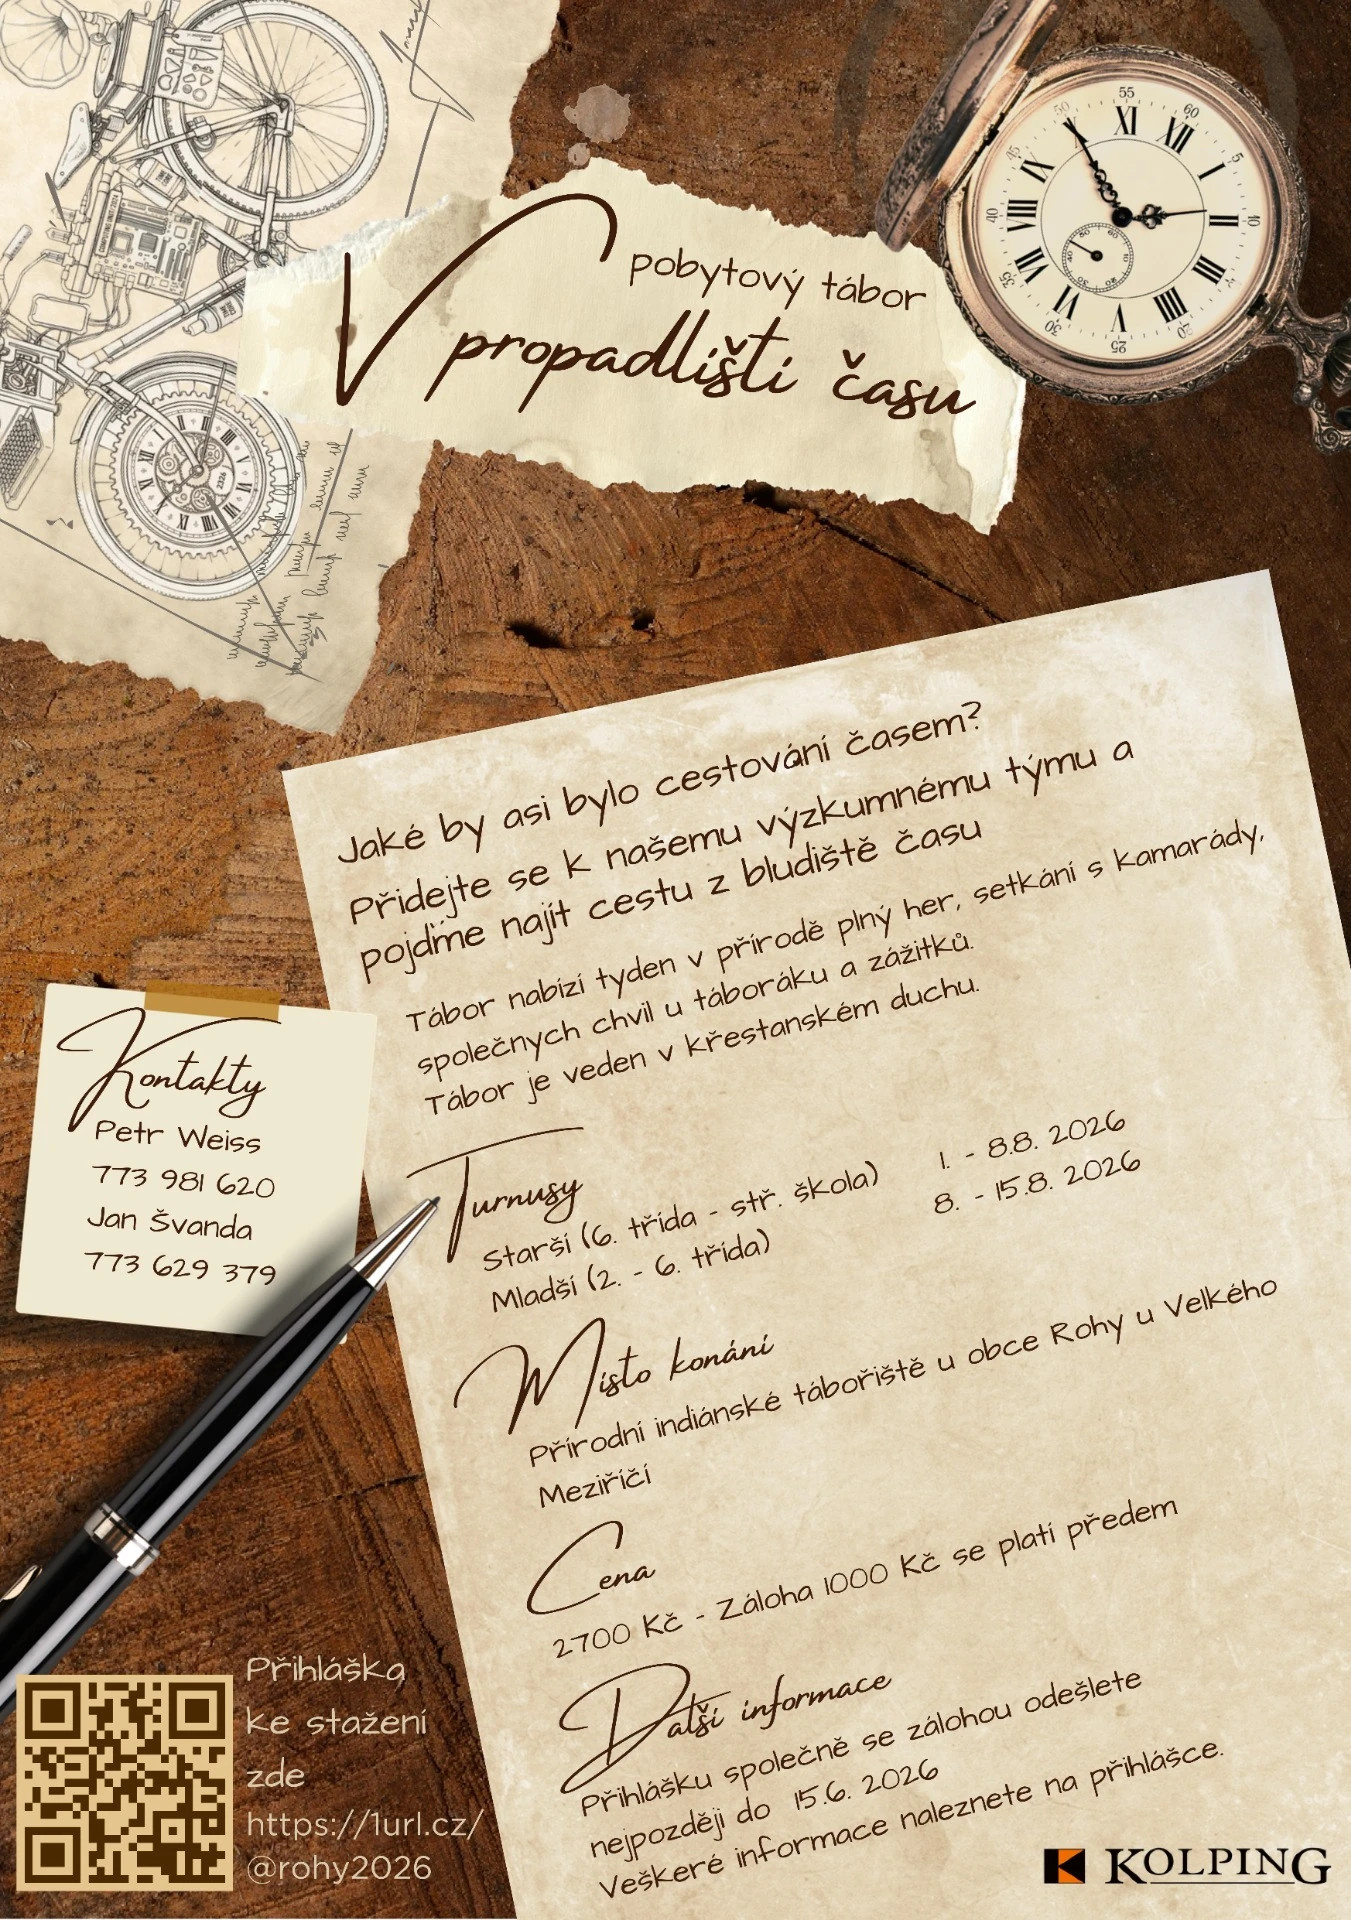 pobytový tábor
V propadlišti času
Jaké by asi bylo cestování časem?
Přidejte se k našemu výzkumnému týmu a
pojďme najít cestu z bludiště času
Tábor nabízí tyden v přírodě plný her, setkání s kamarády,
společnych chvil u táboráku a zážitků.
Tábor je veden v křestanském duchu.
Turnusy
Starší (6. třída - stř. škola) 1. - 8.8. 2026
Mladší (2. - 6. třída) 8. - 15.8. 2026
Místo konání
Přírodní indiánské tábořiště u obce Rohy u Velkého
Meziříčí
Cena
2700 Kč - Záloha 1000 Kč se platí předem
Další informace
Přihlášku společně se zálohou odešlete
nejpozději do 15.6. 2026
Veškeré informace naleznete na přihlášce.
Kontakty
Petr Weiss
773 981 620
Jan Švanda
773 629 379
Přihláška
ke stažení
zde
https://1url.cz/
@rohy2026
KOLPING
55
60
5
10
20
25
30
35
40
45
50
XI
XII
I
II
III
IIII
V
VI
VII
VIII
IX
X